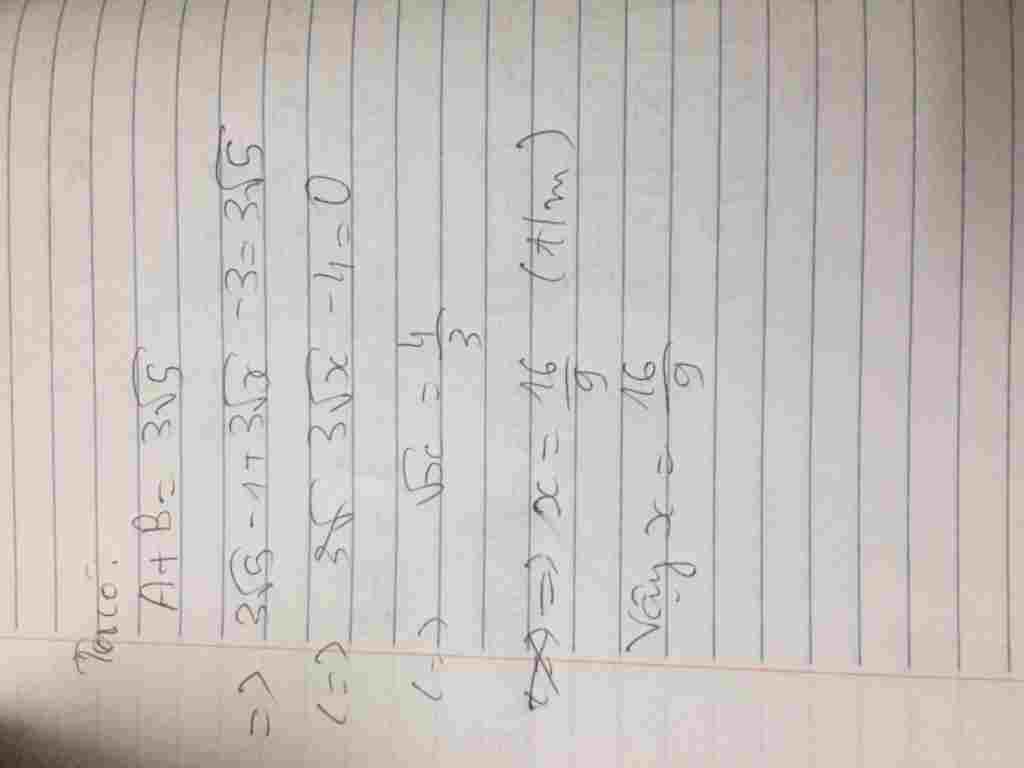 Ta có:
A+B = 3√5
=> 3√5 - 1 + 3√x - 3 = 3√5
(=) 3√x - 4 = 0
(=) √x = 4/3
=) x = 16/9 (t/m)
Vậy x = 16/9